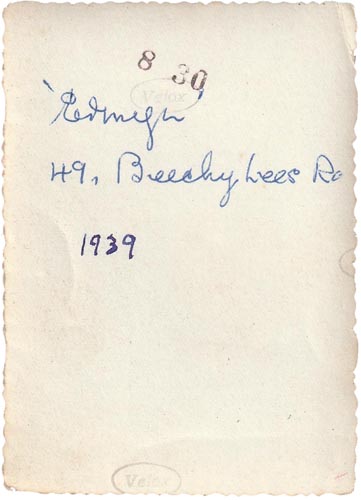 8 30
Velox
49, Beechy Lees Ro
1939
Velox